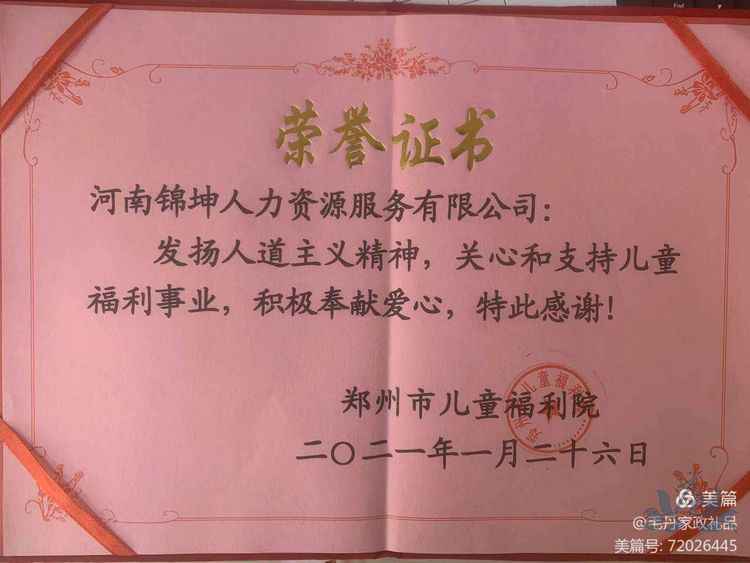 荣誉证书
河南锦坤人力资源服务有限公司：
发扬人道主义精神，关心和支持儿童
福利事业，积极奉献爱心，特此感谢！
郑州市儿童福利院
二〇二一年一月二十六日
美篇
@毛丹家政礼品
美篇号: 72026445